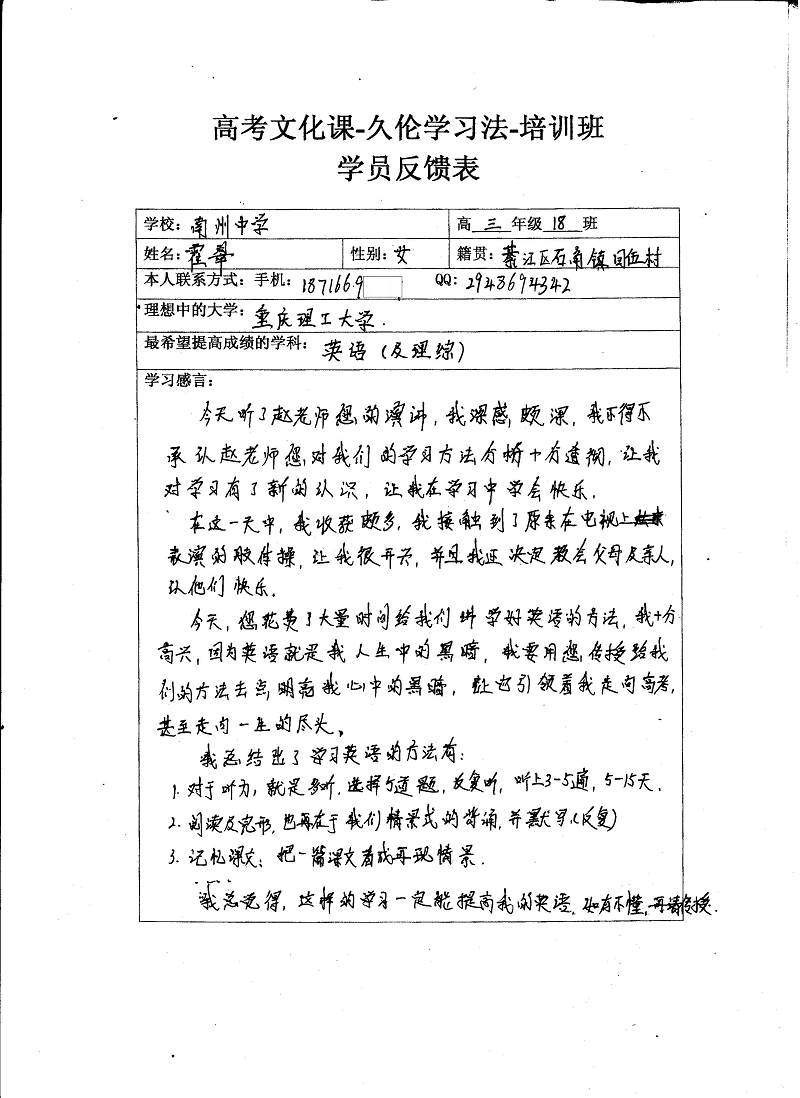 高考文化课-久伦学习法-培训班
学员反馈表
学校：南州中学 高 三 年级 18 班
姓名：霍翠 性别：女 籍贯：綦江区石角镇回伍村
本人联系方式：手机：187166.9 QQ：2948694342
理想中的大学：重庆理工大学.
最希望提高成绩的学科：英语（及理综）
学习感言：
今天听了赵老师您的演讲，我深感颇深，我不得不
承认赵老师您对我们的学习方法分析十分透彻，让我
对学习有了新的认识，让我在学习中学会快乐．
在这一天中，我收获颇多，我接触到了原来在电视上
表演的肢体操，让我很开兴，并且我还决定教会父母及亲人，
以他们快乐．
今天，您花费了大量时间给我们讲学好英语的方法，我十分
高兴，因为英语就是我人生中的黑暗，我要用您传授给我
们的方法去点明亮我心中的黑暗，让它引领着我走向高考，
甚至走向一生的尽头。
我总结出了学习英语的方法有：
1. 对于听力，就是多听．选择5道题，反复听，听上3-5遍，5-15天．
2. 阅读及完形，也再在于我们情景式的背诵，并默写（反复）
3. 记忆课文：把一篇课文看成再现情景．
......
我总觉得，这样的学习一定能提高我的英语．如有不懂，再请传授．